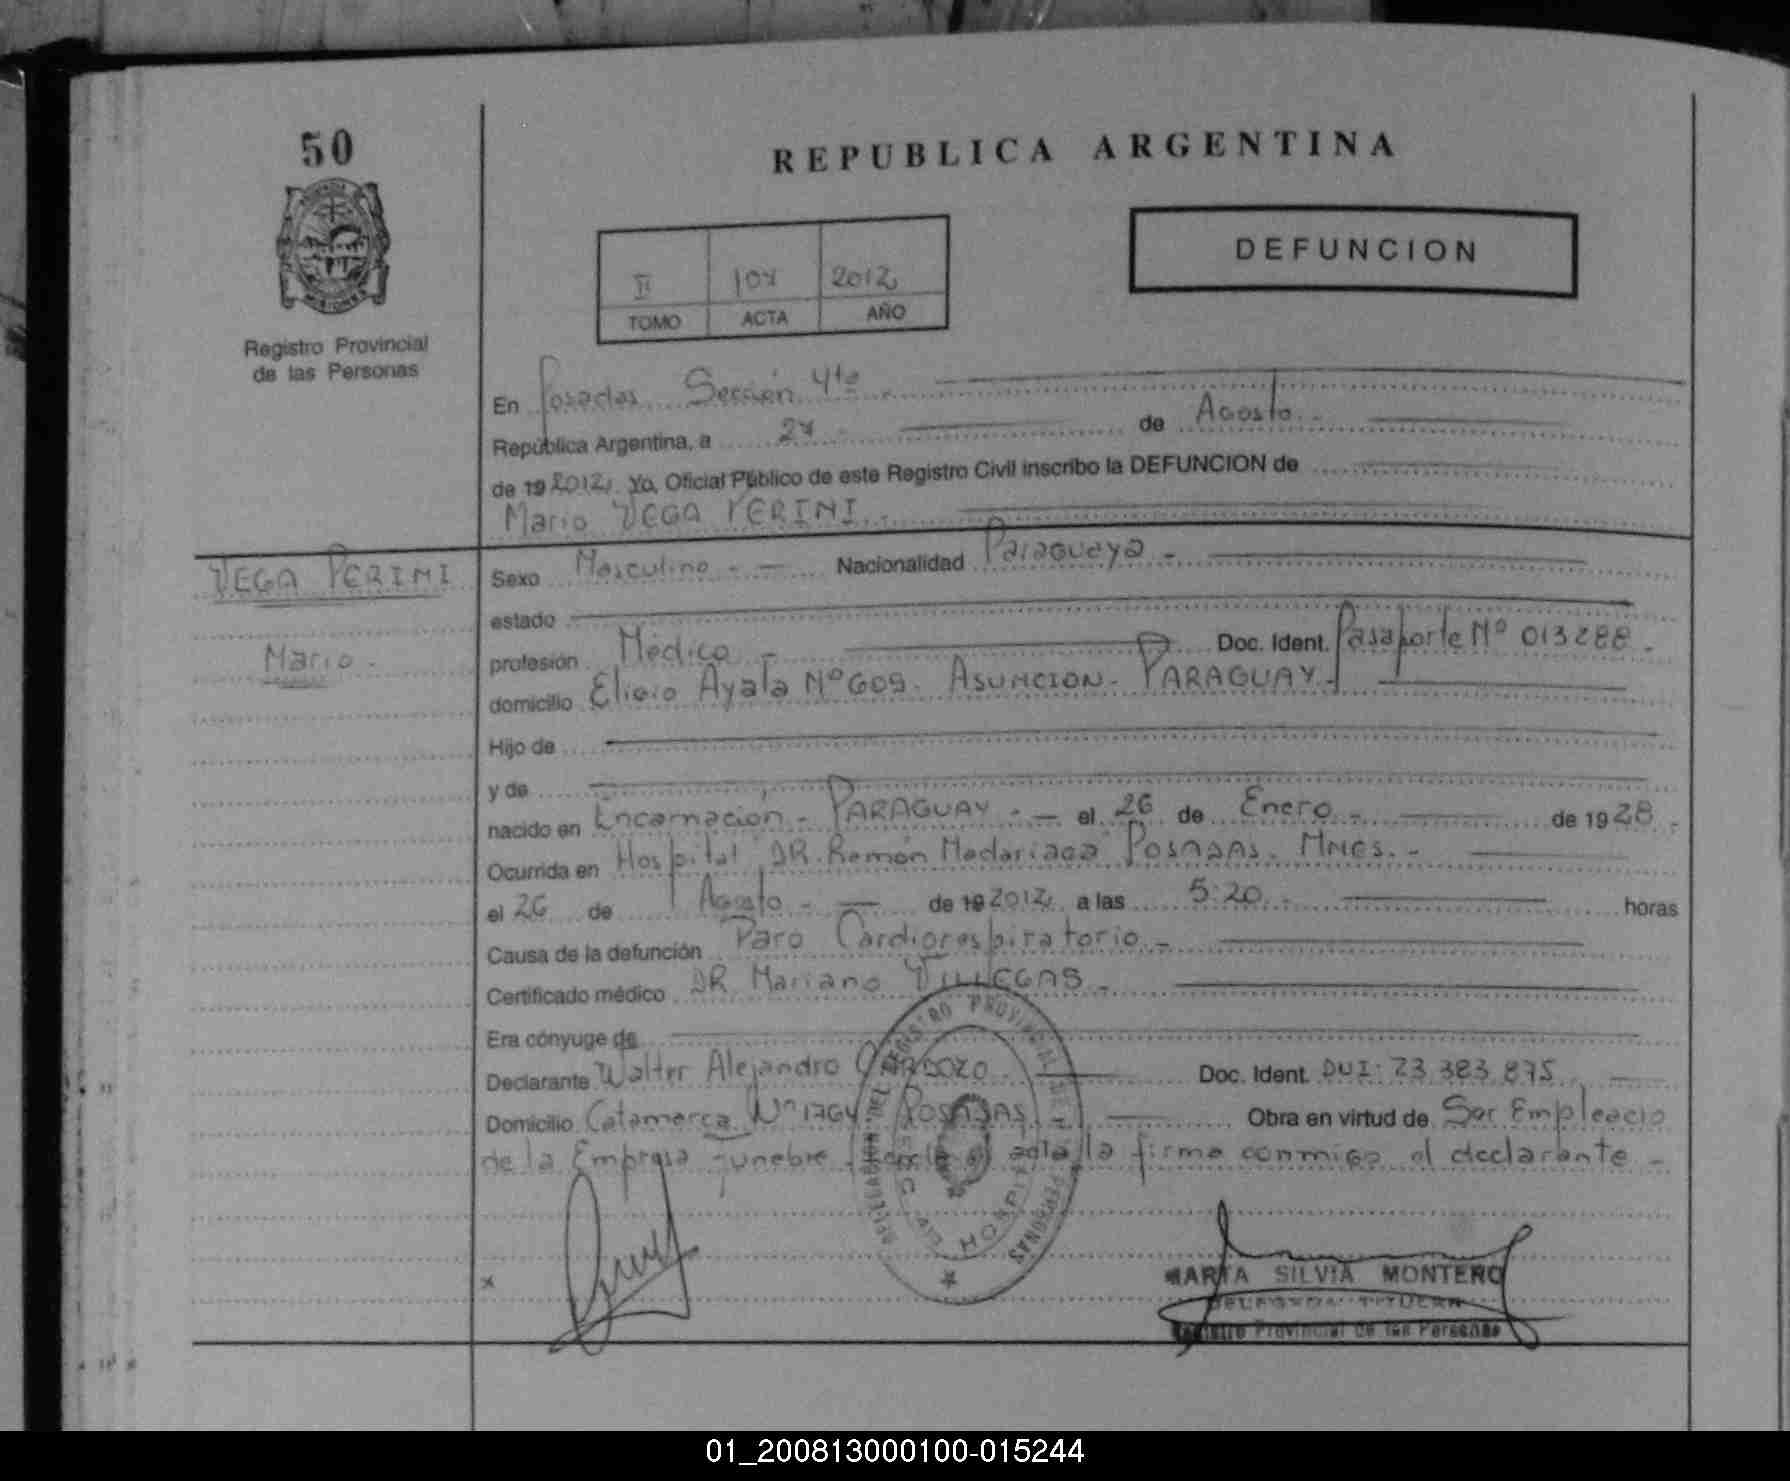 50
REPUBLICA ARGENTINA
DEFUNCION
II 107 2012
TOMO ACTA AÑO
Registro Provincial
de las Personas
En Posadas Sección 4ta
República Argentina, a 27 de Agosto
de 19 2012 Yo, Oficial Público de este Registro Civil inscribo la DEFUNCION de
Mario VEGA PERINI
VEGA PERINI
Mario
Sexo Masculino Nacionalidad Paraguaya
estado
profesión Médico Doc. Ident. Pasaporte Nº 013288
domicilio Eligio Ayala Nº 609. ASUNCION - PARAGUAY
Hijo de
y de
nacido en Encarnación - PARAGUAY el 26 de Enero de 19 28
Ocurrida en Hospital DR. Ramón Madariaga POSADAS. MNES.
el 26 de Agosto de 19 2012 a las 5:20 horas
Causa de la defunción Paro Cardiorespiratorio
Certificado médico DR Mariano VILLEGAS
Era cónyuge de
Declarante Walter Alejandro CARDOZO Doc. Ident. DNI: 23.383.875
Domicilio Catamarca Nº 1764 POSADAS Obra en virtud de Ser Empleado
de la Empresa Funebre acta la firma conmigo el declarante
DELEGACION DEL REGISTRO PROVINCIAL DE LAS PERSONAS
HOSPITAL
x
MARTA SILVIA MONTERO
DELEGADA TITULAR
Registro Provincial de las Personas
01_200813000100-015244